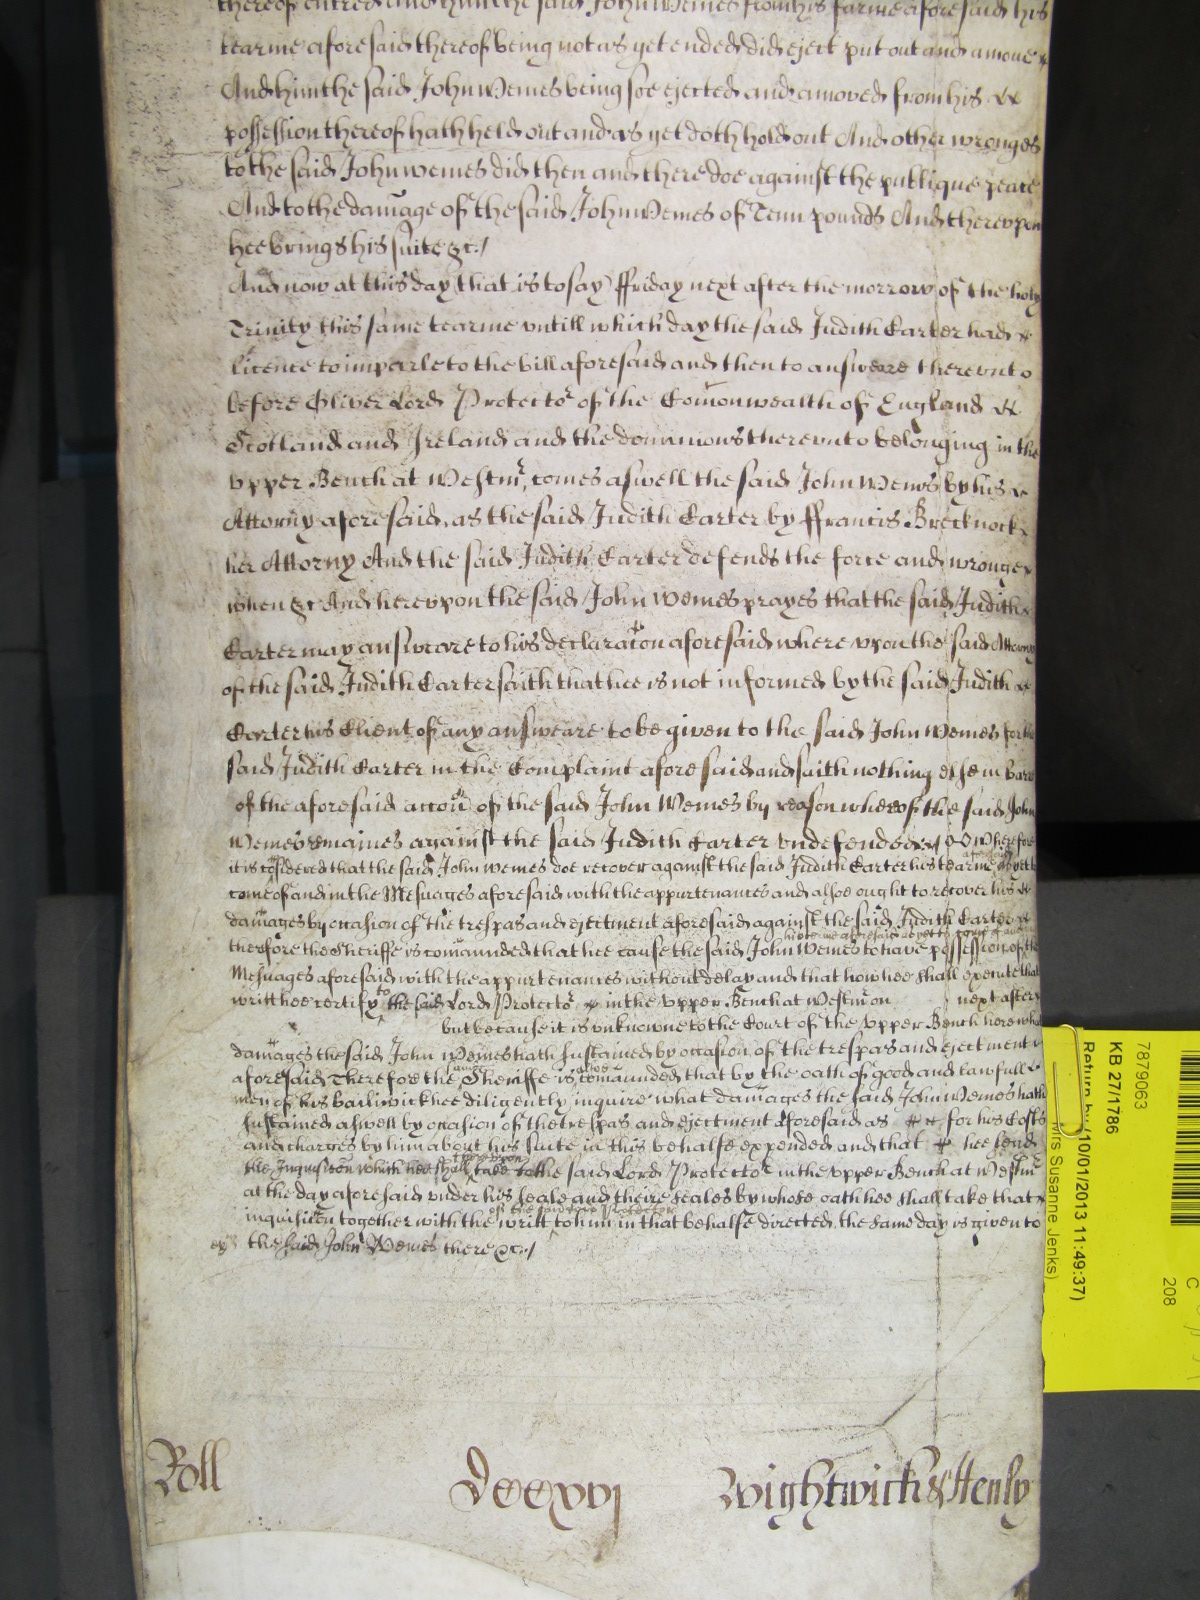 thereof entred and him the said John Wemes from his farme aforesaid his
tearme aforesaid thereof being not as yet ended did eject put out and amove
And him the said John Wemes being soe ejected and amoved from his
possession thereof hath held out and as yet doth hold out And other wronges
to the said John Wemes did then and there doe against the publique peace
And to the damage of the said John Wemes of Tenn pounds And thereupon
hee brings his suite &c./
And now at this day that is to say ffriday next after the morrow of the holy
Trinity this same tearme untill which day the said Judith Carter had
licence to imparle to the bill aforesaid and then to answeare thereunto
before Oliver Lord Protector of the Comonwealth of England
Scotland and Ireland and the dominions thereunto belonging in the
upper Bench at Westmr, comes aswell the said John Wemes by his
Attorny aforesaid, as the said Judith Carter by ffrancis Brecknock
her Attorny And the said Judith Carter defends the force and wronge
when &c And hereupon the said John Wemes prayes that the said Judith
Carter may answeare to his declaracon aforesaid whereupon the said Attorny
of the said Judith Carter saith that hee is not informed by the said Judith
Carter his Client of any answeare to be given to the said John Wemes for the
said Judith Carter in the Complaint aforesaid and saith nothing else in barr
of the aforesaid accon of the said John Wemes by reason whereof the said John
Wemes remaines against the said Judith Carter undefended &c Wherefore
it is cosidered that the said John Wemes doe recover against the said Judith Carter his tearme aforesaid yet to
come of and in the Mesuages aforesaid with the appurtenances and alsoe ought to recover his
damages by occasion of the trespas and ejectment aforesaid against the said Judith Carter
his tearme aforesaid as yet to come of and in
therefore the Sheriffe is comaunded that hee cause the said John Wemes to have possession of the
Mesuages aforesaid with the appurtenances without delay and that how hee shall execute that
writt hee certify to the said Lord Protector in the upper Bench at Westmr on next after
but because it is unknowne to the Court of the upper Bench here what
damages the said John Wemes hath sustained by occasion of the trespas and ejectment
aforesaid Therefore the same Sheriffe is alsoe comaunded that by the oath of good and lawfull
men of his bailiwick hee diligently inquire what damages the said John Wemes hath
sustained aswell by occasion of the trespas and ejectment aforesaid as for his Costs
and charges by him about his suite in this behalfe expended and that hee send
the Inquisicon which hee shall thereupon take to the said Lord Protector in the upper Bench at Westmr
at the day aforesaid under his seale and theire seales by whose oath hee shall take that
inquisicon together with the writt of the said Lord Protector to him in that behalfe directed, the same day is given to
the said John Wemes there &c./
Roll DCCxvj Wightwick & Henly
7879063
KB 27/1786
Return by (10/01/2013 11:49:37)
Mrs Susanne Jenks)
C
208